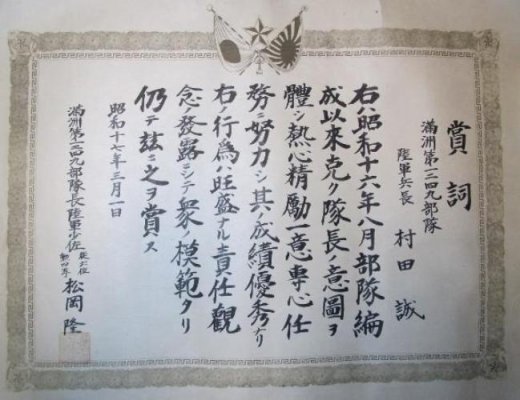 賞詞
滿洲第一二四九部隊
陸軍兵長 村田誠
右ハ昭和十六年八月部隊編
成以來克ク隊長ノ意圖ヲ
體シ熱心精勵一意專心任
務ニ努力シ其ノ成績優秀ナリ
右ノ行爲ハ旺盛ナル責任觀
念ノ發露ニシテ衆ノ模範タリ
仍テ玆ニ之ヲ賞ス
昭和十七年三月一日
滿洲第一二四九部隊長陸軍少佐 從六位 勳四等 松岡隆